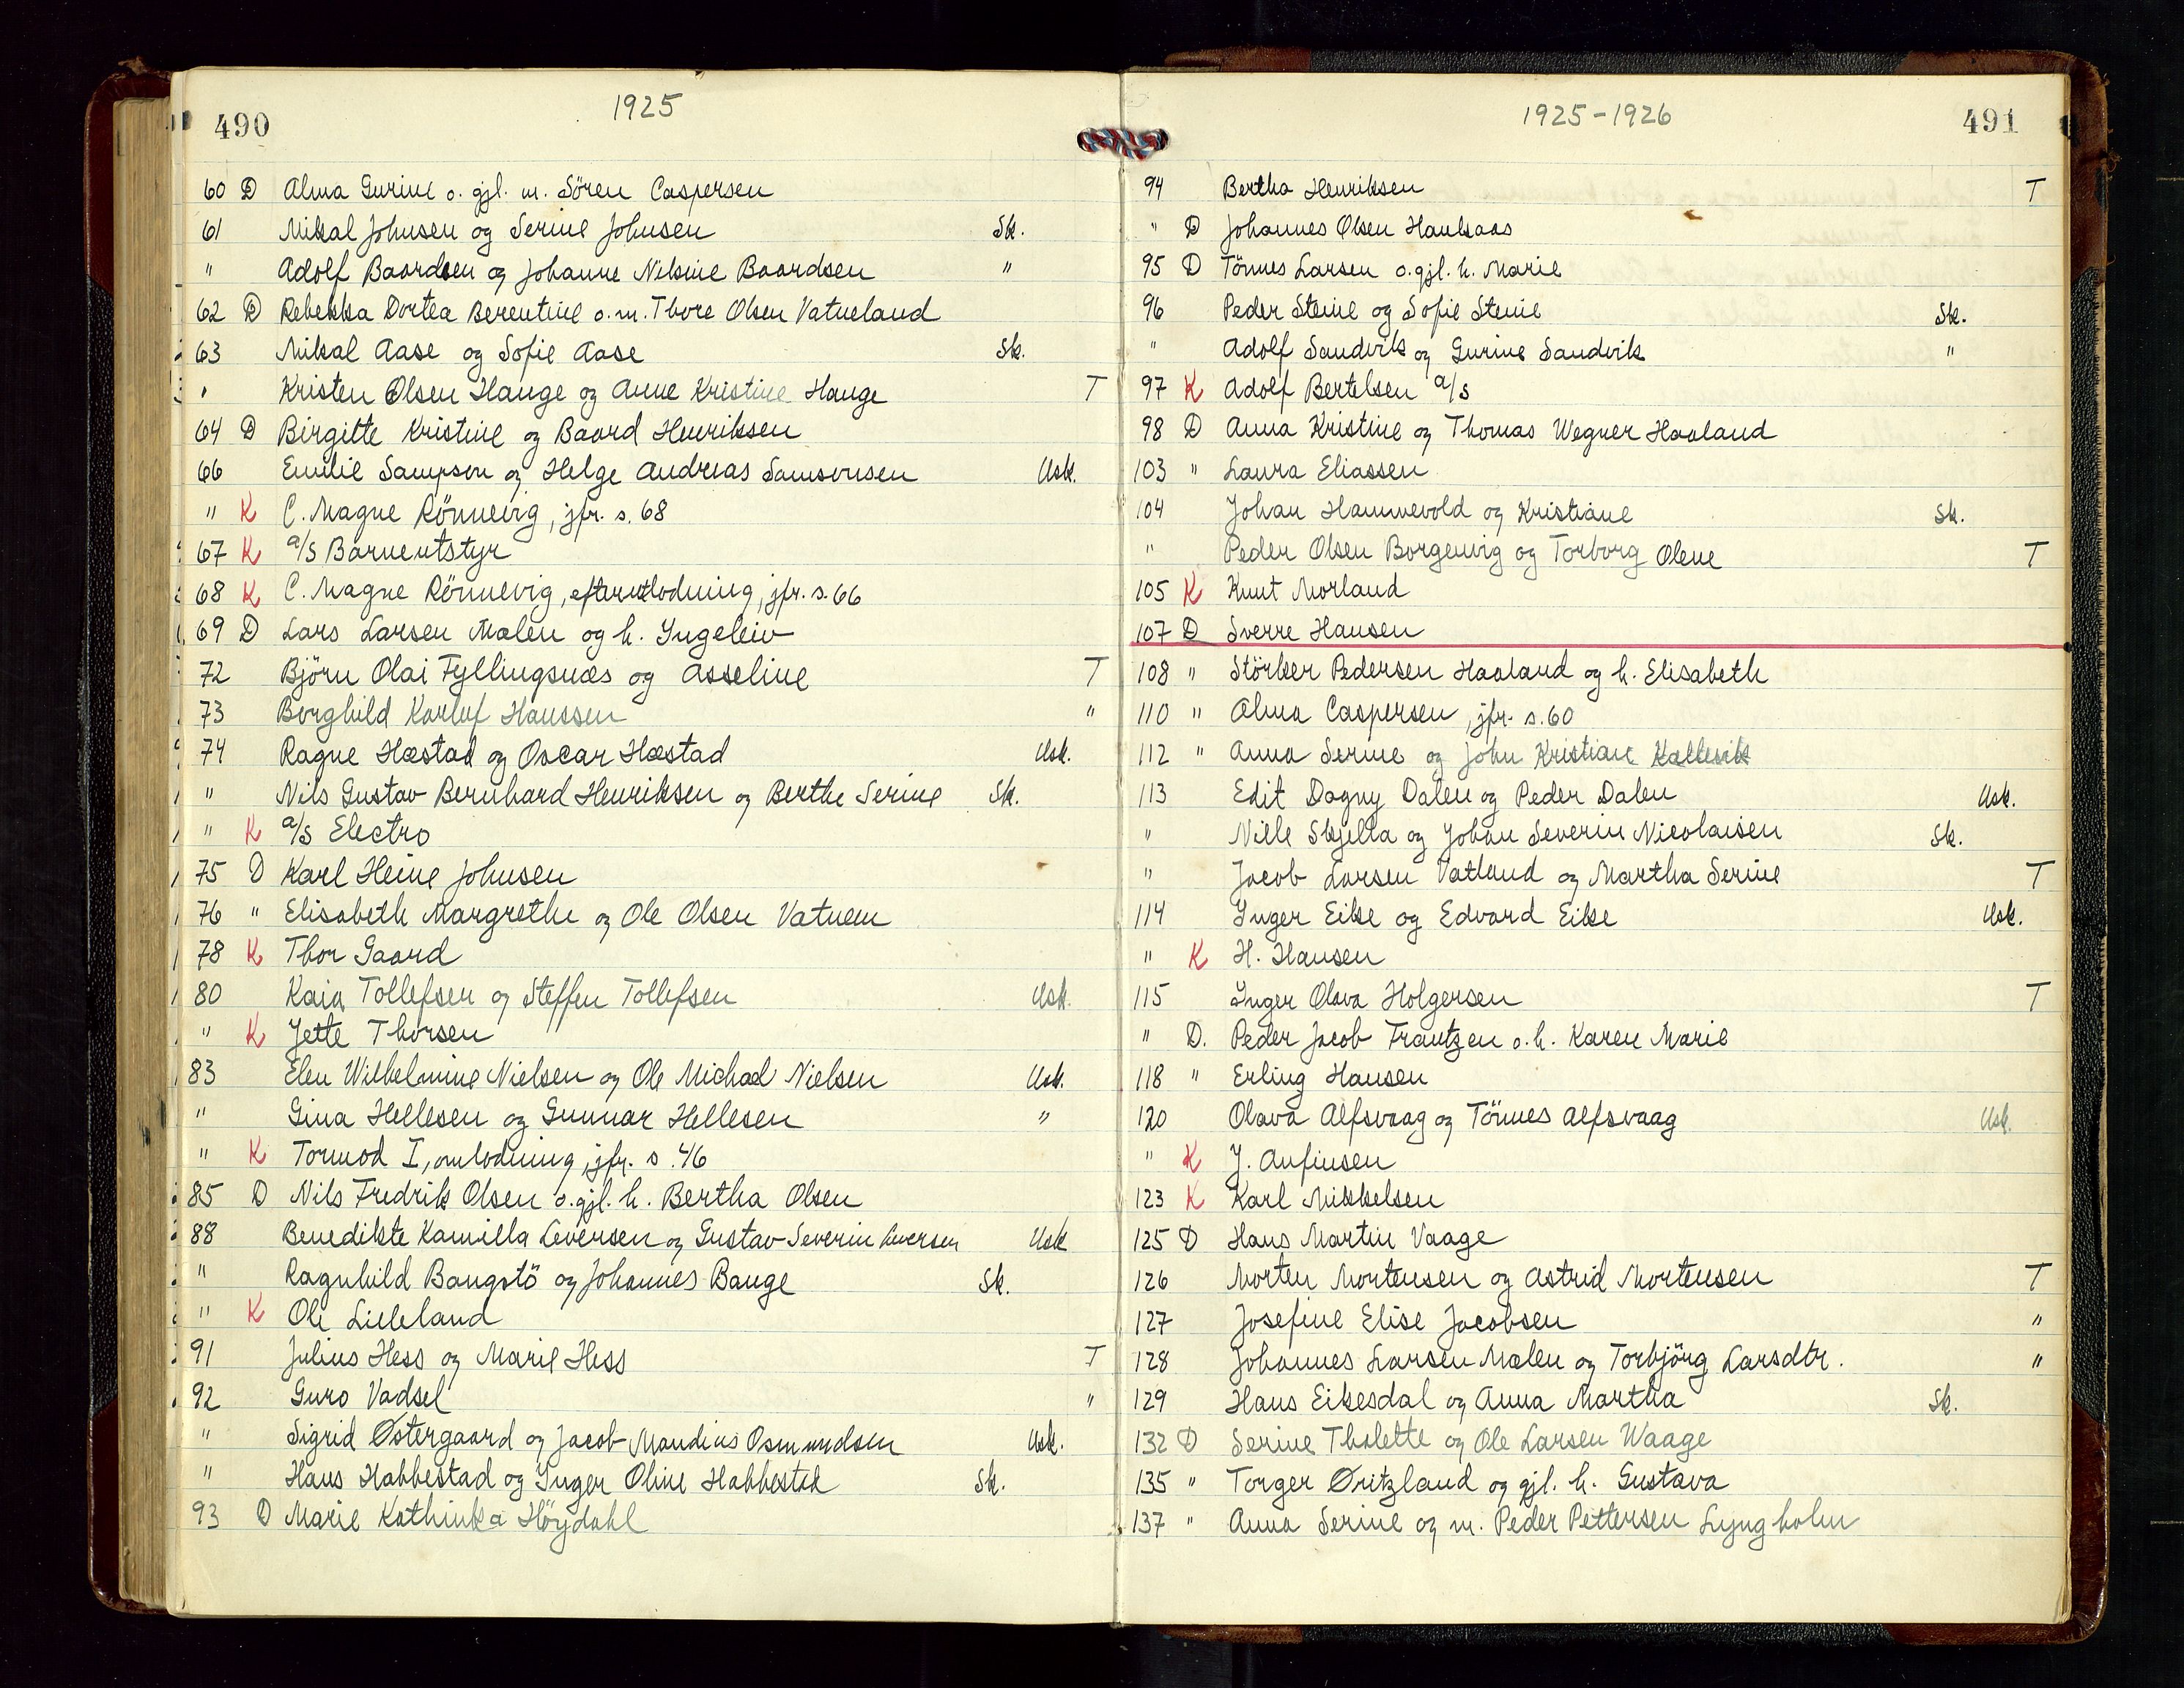 490
1925
60 D Alma Gurine o. gjl. m. Sören Caspersen
61 Mikal Johnsen og Serine Johnsen Sk.
" Adolf Baardsen og Johanne Nilsine Baardsen "
62 D Rebekka Dortea Berentine o. m. Thore Olsen Vatneland
63 Mikal Aase og Sofie Aase Sk.
" Kristen Olsen Hauge og Anne Kristine Hauge T
64 D Birgitte Kristine og Baard Henriksen
66 Emilie Sampson og Helge Andreas Samsonsen Usk.
" K C. Magne Rönnevig, jfr. s. 68
67 K a/s Barneutstyr
68 K C. Magne Rönnevig, efterutlodning, jfr. s. 66
69 D Lars Larsen Mælen og h. Ingeleiv
72 Björn Olai Fyllingsnæs og Asseline T
73 Borghild Karluf Hanssen "
74 Ragne Hæstad og Oscar Hæstad Usk.
" Nils Gustav Bernhard Henriksen og Berthe Serine Sk.
" K a/s Electro
75 D Karl Heine Johnsen
76 " Elisabeth Margrethe og Ole Olsen Vatnem
78 K Thor Gaard
80 Kaia Tollefsen og Steffen Tollefsen Usk.
" K Jette Thorsen
83 Elen Wilhelmine Nielsen og Ole Michael Nielsen Usk.
" Gina Hellesen og Gunnar Hellesen "
" K Tormod I, omlodning, jfr. s. 46
85 D Nils Fredrik Olsen o. gjl. h. Bertha Olsen
88 Benedikte Kamilla Leversen og Gustav Severin Leversen Usk
" Ragnhild Baugstö og Johannes Bauge Sk.
" K Ole Lilleland
91 Julius Hess og Marie Hess T
92 Guro Vadsel "
" Sigrid Østergaard og Jacob Mandius Osmundsen Usk.
" Hans Habbestad og Inger Oline Habbestad Sk.
93 D Marie Kathinka Höydahl
1925-1926
491
94 Bertha Henriksen T
" D Johannes Olsen Haukaas
95 D Tönnes Larsen o. gjl. h. Marie
96 Peder Steine og Sofie Steine Sk.
" Adolf Sandvik og Gurine Sandvik "
97 K Adolf Bertelsen a/s
98 D Anna Kristine og Thomas Wegner Haaland
103 " Laura Eliassen
104 Johan Hammevold og Kristiane Sk.
" Peder Olsen Borgenvig og Torborg Olene T
105 K Knut Morland
107 D Sverre Hansen
108 " Störker Pedersen Haaland og h. Elisabeth
110 " Alma Caspersen, jfr. s. 60
112 " Anna Serine og John Kristian Kallevik
113 Edit Dagny Dalen og Peder Dalen Usk.
" Nille Skjella og Johan Severin Nicolaisen Sk.
" Jacob Larsen Vatland og Martha Serine T
114 Inger Eike og Edvard Eike Usk.
" K H. Hansen
115 Inger Olava Holgersen T
" D. Peder Jacob Frantzen o. h. Karen Marie
118 " Erling Hansen
120 Olava Alfsvaag og Tönnes Alfsvaag Usk.
" K J. Anfinsen
123 K Karl Mikkelsen
125 D Hans Martin Vaage
126 Morten Mortensen og Astrid Mortensen T
127 Josefine Elise Jacobsen "
128 Johannes Larsen Mælen og Torbjörg Larsdtr. "
129 Hans Eikesdal og Anna Martha Sk.
132 D Serine Tholette og Ole Larsen Waage
135 " Torger Øritzland og gjl. h. Gustava
137 " Anna Serine og m. Peder Pettersen Lyngholm